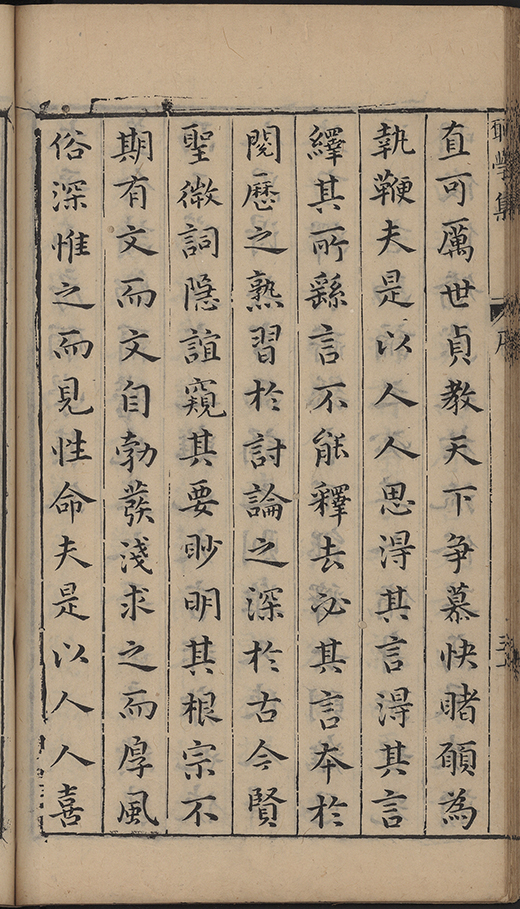 直可厲世貞教天下爭慕快睹願為
執鞭夫是以人人思得其言得其言
繹其所繇言不能釋去必其言本於
閱歷之熟習於討論之深於古今賢
聖微詞隱誼窺其要眇明其根宗不
期有文而文自勃發淺求之而厚風
俗深惟之而見性命夫是以人人喜